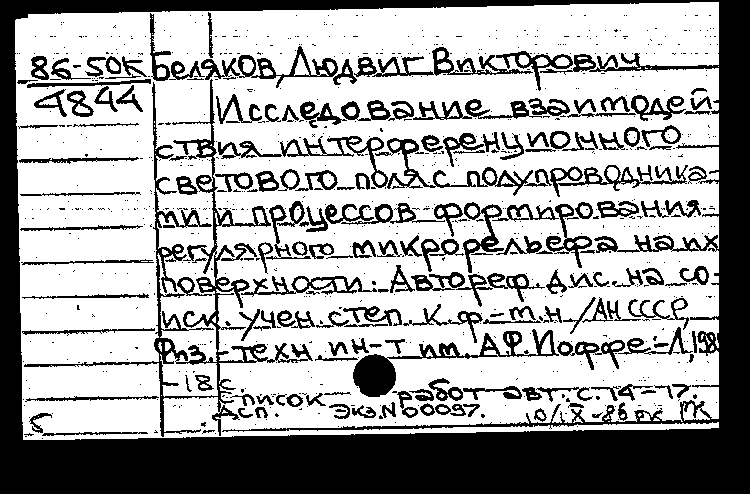 86-50К Беляков, Людвиг Викторович
4844
Исследование взаимодей-
ствия интерференционного
светового поля с полупроводника-
ми и процессов формирования
регулярного микрорельефа на их
поверхности: Автореф. дис. на со-
иск. учен. степ. к.ф.-м.н /АН СССР,
Физ.-техн. ин-т им. А.Ф.Иоффе.-Л,
-18 с.
Список работ авт.: с. 14-17.
Асп. Экз.N 00097.
Б 10/IX-86 ПК